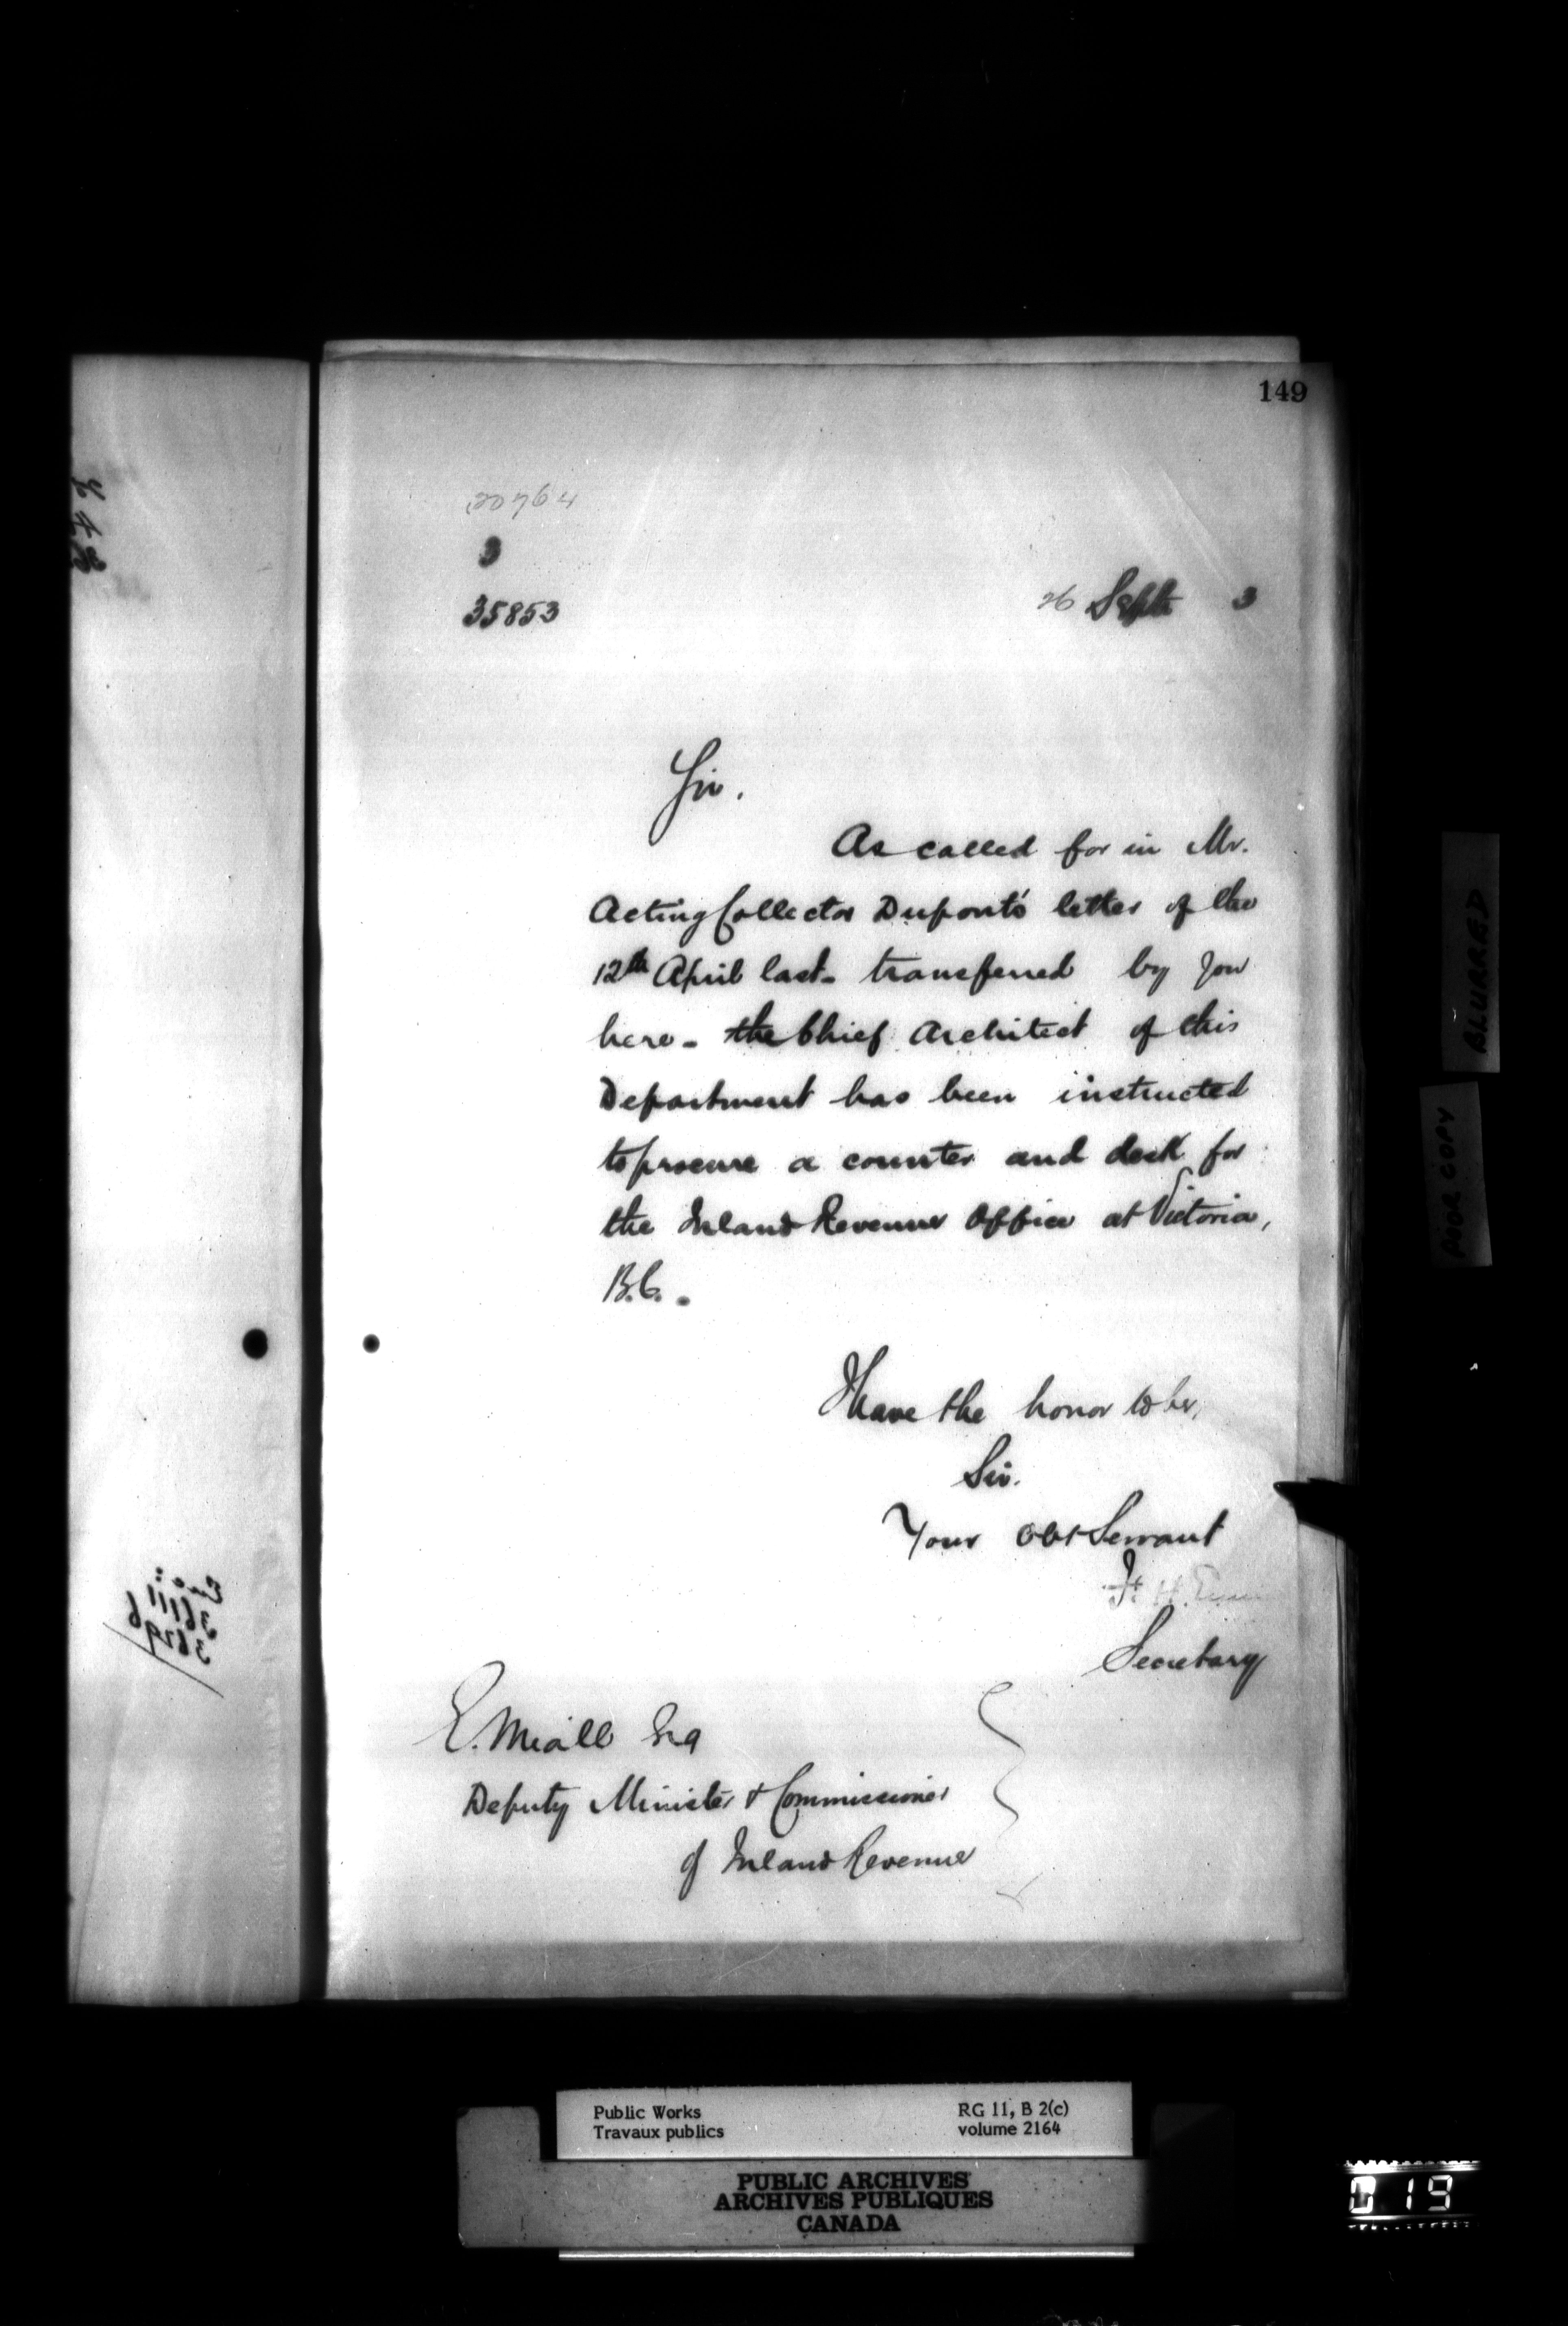 149
20764
3
35853
26 Sept 3
Sir.
As called for in Mr.
Acting Collector Dupont's letter of the
12th April last - transferred by you
here - the Chief Architect of this
Department has been instructed
to procure a counter and desk for
the Inland Revenue Office at Victoria,
B.C.
I have the honor to be,
Sir.
Your Obt Servant
F. H. En
Secretary
E. Miall Esq
Deputy Minister & Commissioner
of Inland Revenue
Enc:
36111
36796
BLURRED
POOR COPY
Public Works
Travaux publics
RG 11, B 2(c)
volume 2164
PUBLIC ARCHIVES
ARCHIVES PUBLIQUES
CANADA
019